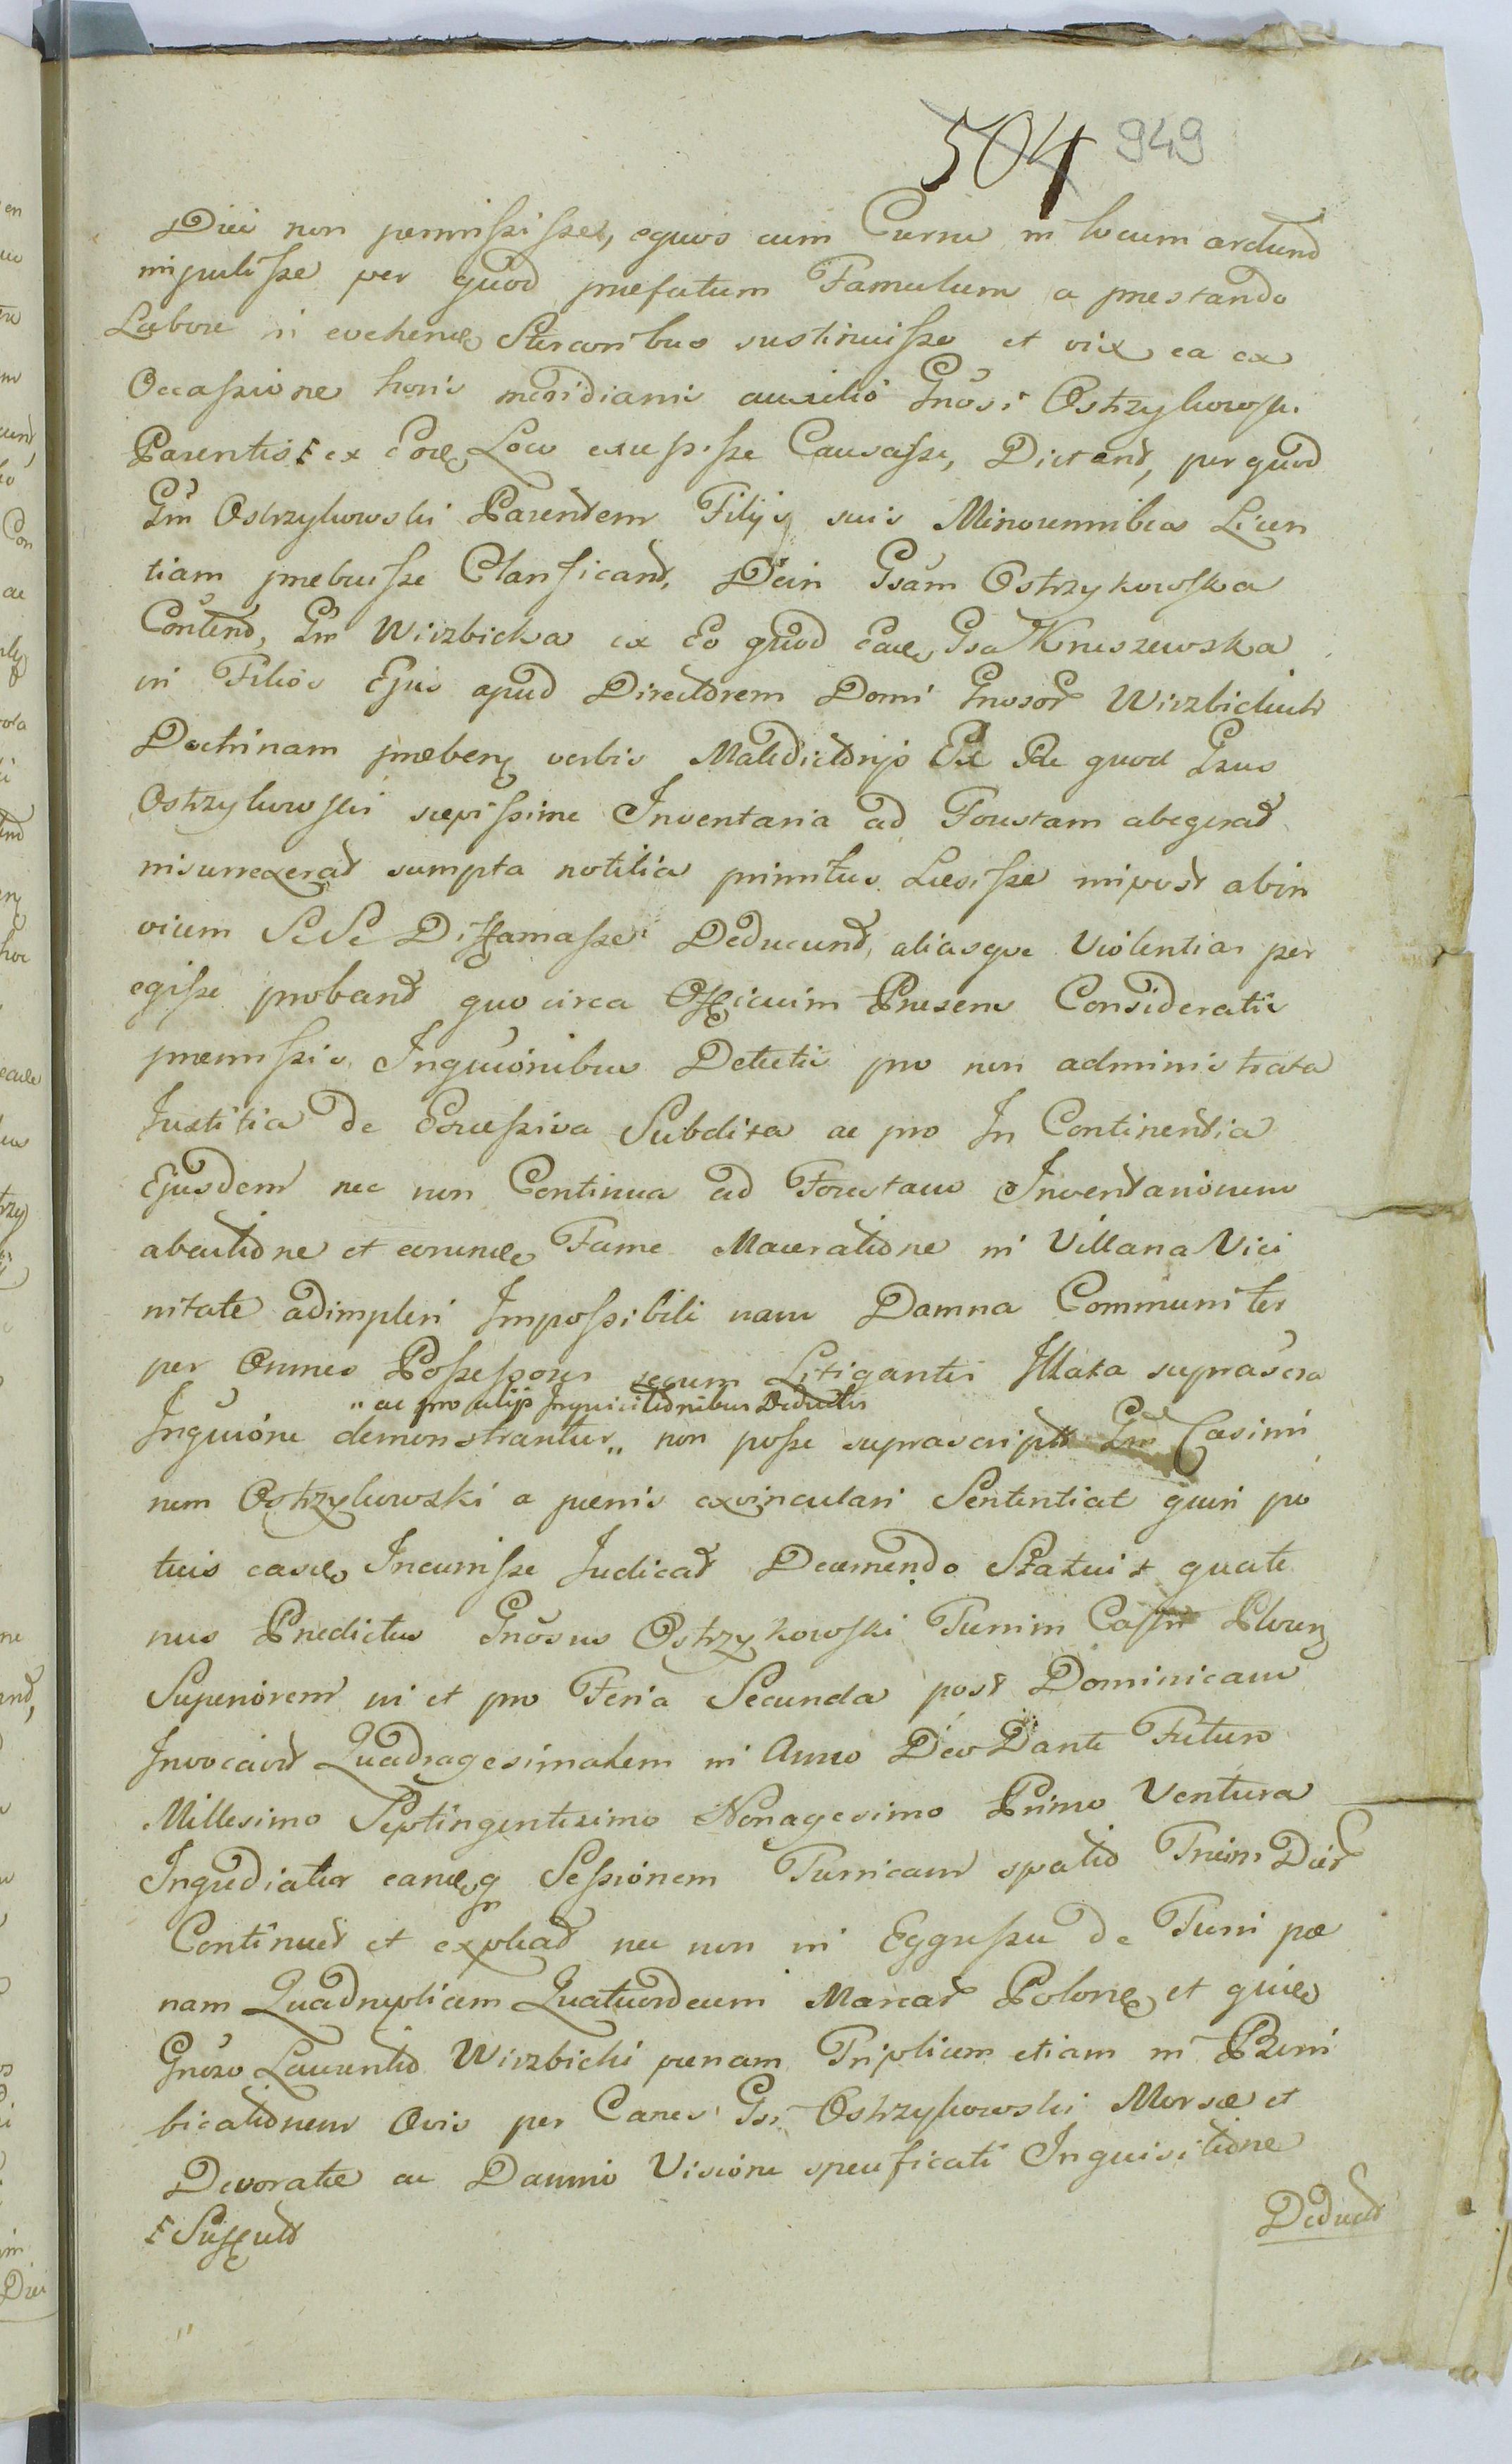 504 949
Diei non permississe, equos cum Curru in locum arctum
impulisse per quod praefatum Famulum a prestando
Labore in evehend Stercoribus sustinuisse et vix ea ex
Occassione horis meridianis auxilio Gnosi Ostrzykowski
Parentis ex Eod Loco exussisse Causasse, Dictand, per quod
Gm Ostrzykowski Parentem Filijs suis Minorennibus Licen
tiam prebuisse Clarificand, Dein Gsam Ostrzykowska
Contend, Gm Wirzbicka ex Eo quod Gsa Kruszewska
in Filios Ejus apud Directorem Domi Gnosor Wirzbickich
Doctrinam praeben verbis Maledictorijs Ex Re quod Gsus
Ostrzykowski saepissime Inventaria ad Foustam abegerat
insurrexerat sumpta notitia primitus Laesisse impost abin
vicem Se Se Diffamasse Deducend, aliasque Violentias per
egisse proband quo circa Officium Presens Consideratis
praemissis Inquionibus Detectis pro non administrata
Justitia de Excessiva Subdita ac pro In Continentia
Ejusdem nec non Continua ad Foustam Inventariorum
abactione et eorund Fame Maceratione in Villana Vici
nitate adimpleri Impossibili nam Damna Communiter
per Omnes Possessores secum Litigantes Illata suprascra
" ac pro alijs Inquisitionibus Deductis
Inquione demonstrantur " non posse suprascript Gm Casimi
rum Ostrzykowski a paenis exvinculari Sententiat quin po
tius easd Incurrisse Judicat Decernendo Statuit quate
nus Predictus Gnosus Ostrzykowski Turrim Castr
Superiorem in et pro Feria Secunda post Dominicam
Invocavit Quadragesimalem in Anno Deo Dante Futuro
Millesimo Septingentesimo Nonagesimo Primo Ventura
Ingrediatur eand q Sessionem Turricam spatio Trium Dier
Continuet et expleat nec non in Eggressu de Turri pae
nam Quadruplicem Quatuordecim Marcar Polon et
Gnoso Laurentio Wirzbicki paenam Triplicem etiam in Boni
ficationem Ovis per Canes Gsi Ostrzykowski Morsae et
Devoratae ac Damni Visione specificati Inquisitione
Suffult
Deduct